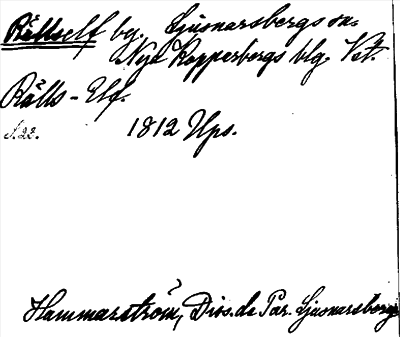 Rällself by. Ljusnarsbergs sn.
Nya Kopparbergs blg. Vst.
Rälls-Elf.
S. 22. 1812 Ups.
Hammarström, Diss. de Par. Ljusnarsberg